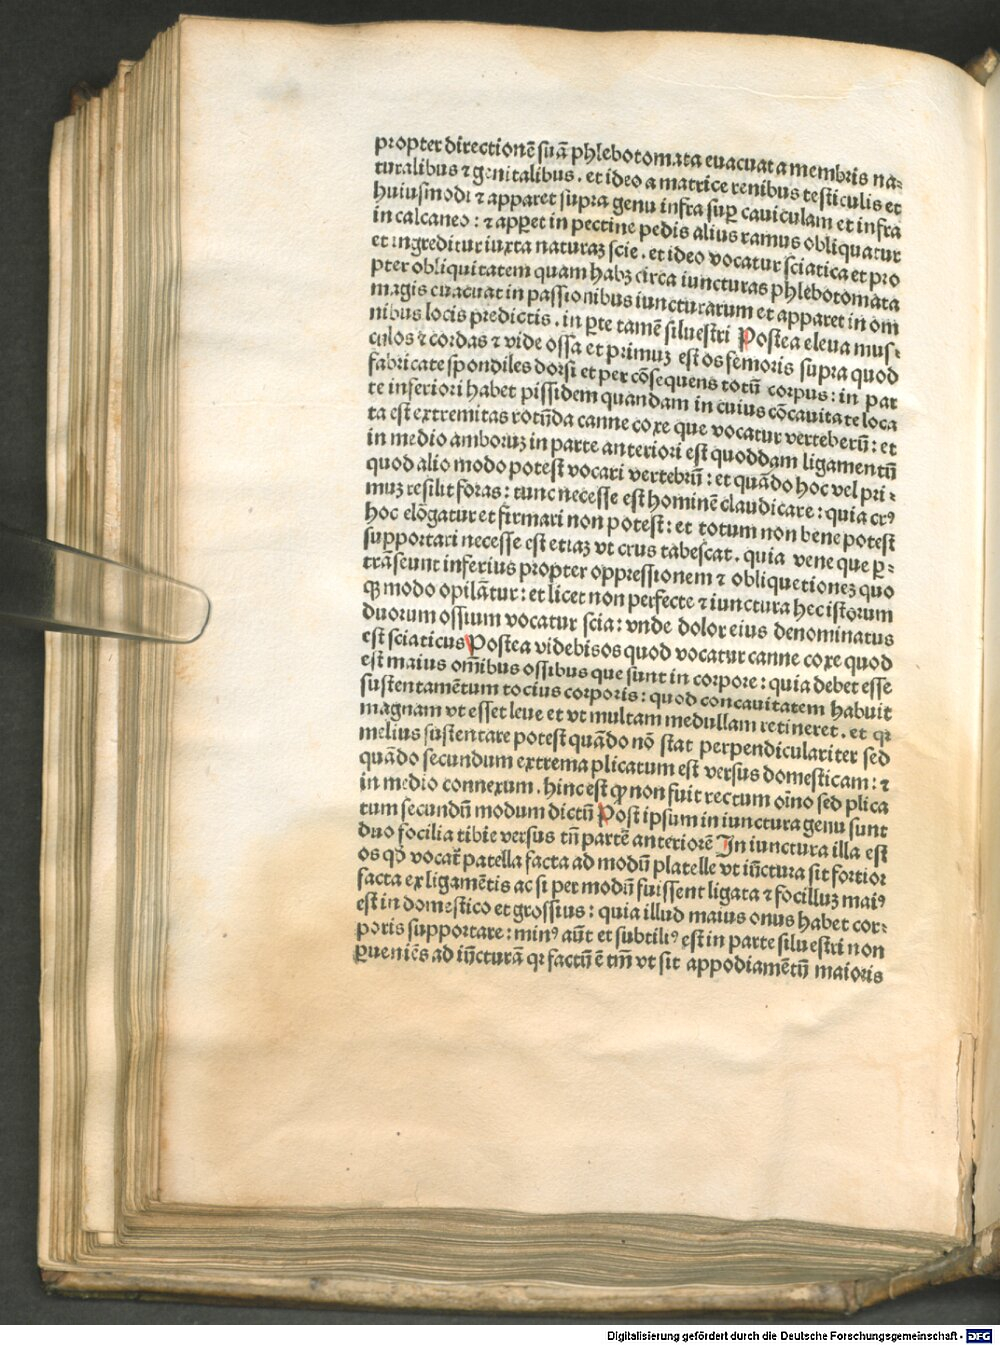 propter directionē suā phlebotomata euacuat a membris na⸗
turalibus ⁊ genitalibus . et ideo a matrice renibus testiculis et
huiusmodi ⁊ apparet supra genu infra suꝑ cauiculam et infra
in calcaneo : ⁊ apꝑet in pectine pedis alius ramus obliquatur
et ingreditur iuxta naturaꝫ scie . et ideo vocatur sciatica et pro
pter obliquitatem quam habꝫ circa iuncturas phlebotomata
magis euacuat in passionibus iuncturarum et apparet in om
nibus locis predictis . in ꝑte tamē siluestri Postea eleua mus⸗
culos ⁊ cordas ⁊ vide ossa et primuꝫ est os femoris supra quod
fabricate spondiles dorsi et per cōsequens totū corpus : in par
te inferiori habet pissidem quandam in cuius cōcauitate loca
ta est extremitas rotūda canne coxe que vocatur verteberū : et
in medio amboruꝫ in parte anteriori est quoddam ligamentū
quod alio modo potest vocari vertebrū : et quādo hoc vel pri⸗
muꝫ resilit foras : tunc necesse est hominē claudicare : quia crꝰ
hoc elōgatur et firmari non potest : et totum non bene potest
supportari necesse est etiaꝫ vt crus tabescat . quia vene que ꝑ⸗
trāseunt inferius propter oppressionem ⁊ obliquetionez quo
qꝫ modo opilātur : et licet non perfecte ⁊ iunctura hec istorum
duorum ossium vocatur scia : vnde dolor eius denominatus
est sciaticus Postea videbis os quod vocatur canne coxe quod
est maius om̄ibus ossibus que sunt in corpore : quia debet esse
sustentamētum tocius corporis : quod concauitatem habuit
magnam vt esset leue et vt multam medullam retineret . et qꝛ
melius sustentare potest quādo nō stat perpendiculariter sed
quādo secundum extrema plicatum est versus domesticam : ⁊
in medio connexum . hinc est ꝙ non fuit rectum oīno sed plica
tum secundū modum dictū Post ipsum in iunctura genu sunt
duo focilia tibie versus tn̄ partē anteriorē In iunctura illa est
os qd̄ vocat᷑ patella facta ad modū platelle vt iūctura sit fortior
facta ex ligamētis ac si per modū fuissent ligata ⁊ focilluꝫ maiꝰ
est in domestico et grossius : quia illud maius onus habet cor⸗
poris supportare : minꝰ aūt et subtiliꝰ est in parte siluestri non
ꝑueniēs ad iūcturā qꝛ factū ē tm̄ vt sit appodiamētū maioris
Digitalisierung gefördert durch die Deutsche Forschungsgemeinschaft - DFG